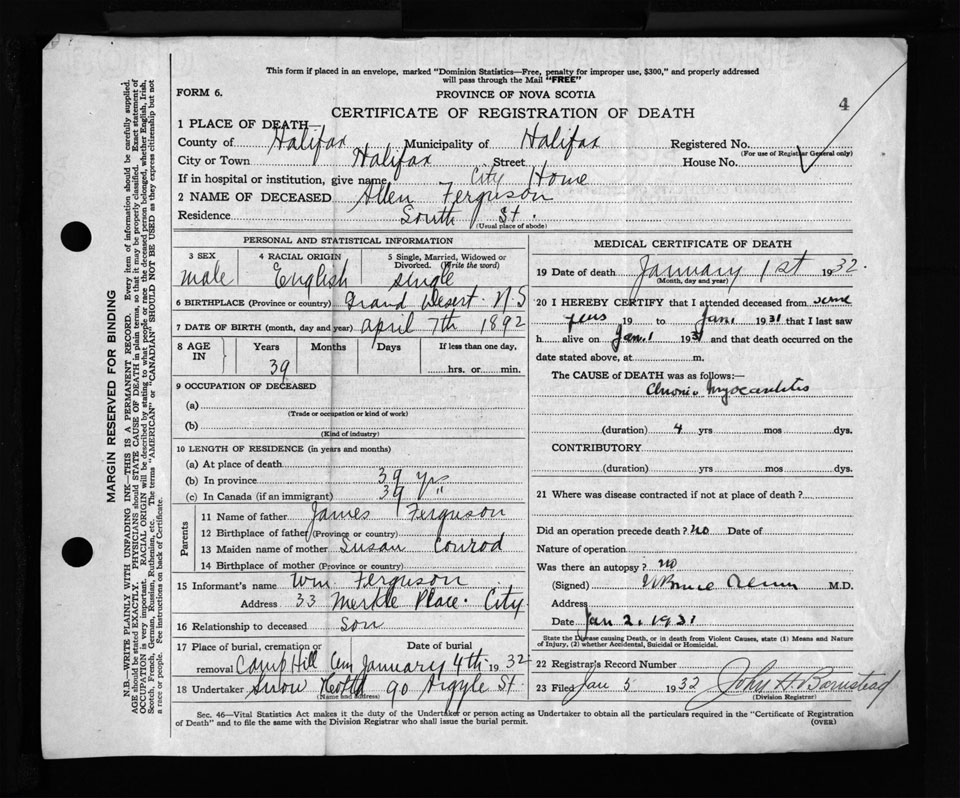 This form if placed in an envelope, marked "Dominion Statistics—Free, penalty for improper use, $300," and properly addressed
will pass through the Mail "FREE"
FORM 6.
PROVINCE OF NOVA SCOTIA
4
CERTIFICATE OF REGISTRATION OF DEATH
1 PLACE OF DEATH—
County of Halifax Municipality of Halifax Registered No.
(For use of Registrar General only)
City or Town Halifax Street House No.
If in hospital or institution, give name City Home
2 NAME OF DECEASED Allen Ferguson
Residence South St.
(Usual place of abode)
PERSONAL AND STATISTICAL INFORMATION
3 SEX 4 RACIAL ORIGIN 5 Single, Married, Widowed or
Divorced. (Write the word)
male English single
6 BIRTHPLACE (Province or country) Grand Desert. N.S
7 DATE OF BIRTH (month, day and year) April 7th 1892
8 AGE IN Years Months Days If less than one day,
39 hrs. or min.
9 OCCUPATION OF DECEASED
(a)
(Trade or occupation or kind of work)
(b)
(Kind of industry)
10 LENGTH OF RESIDENCE (in years and months)
(a) At place of death
(b) In province 39 yrs
(c) In Canada (if an immigrant) 39 "
Parents
11 Name of father James Ferguson
12 Birthplace of father (Province or country)
13 Maiden name of mother Susan Conrod
14 Birthplace of mother (Province or country)
15 Informant's name Wm. Ferguson
Address 33 Merkle Place. City
16 Relationship to deceased Son
17 Place of burial, cremation or removal Date of burial
Camp Hill Cem January 4th 1932
18 Undertaker Snow 90 Argyle St.
(Name and address)
MEDICAL CERTIFICATE OF DEATH
19 Date of death January 1st 1932.
(Month, day and year)
20 I HEREBY CERTIFY that I attended deceased from some
years 19 to Jan. 1931 that I last saw
h alive on Jan. 1 1931 and that death occurred on the
date stated above, at m.
The CAUSE of DEATH was as follows:—
Chronic Myocarditis
(duration) 4 yrs mos dys.
CONTRIBUTORY
(duration) yrs mos dys.
21 Where was disease contracted if not at place of death?
Did an operation precede death? no Date of
Nature of operation
Was there an autopsy? no
(Signed) M.D.
Address
Date Jan 2. 1931
State the Disease causing Death, or in death from Violent Causes, state (1) Means and Nature
of Injury, (2) whether Accidental, Suicidal or Homicidal.
22 Registrar's Record Number
23 Filed Jan 5 1932 John H Barnstead
(Division Registrar)
Sec. 46—Vital Statistics Act makes it the duty of the Undertaker or person acting as Undertaker to obtain all the particulars required in the "Certificate of Registration
of Death" and to file the same with the Division Registrar who shall issue the burial permit. (OVER)
MARGIN RESERVED FOR BINDING
N.B.—WRITE PLAINLY WITH UNFADING INK—THIS IS A PERMANENT RECORD. Every item of information should be carefully supplied.
AGE should be stated EXACTLY. PHYSICIANS should STATE CAUSE OF DEATH in plain terms, so that it may be properly classified. Exact statement of
OCCUPATION is very important. RACIAL ORIGIN will be described by stating to what people or race the deceased person belonged, whether English, Irish,
Scotch, French, German, Russian, Ruthenian, etc. The terms "AMERICAN" or "CANADIAN" SHOULD NOT BE USED as they express citizenship but not
a race or people. Fee instructions on back of Certificate.